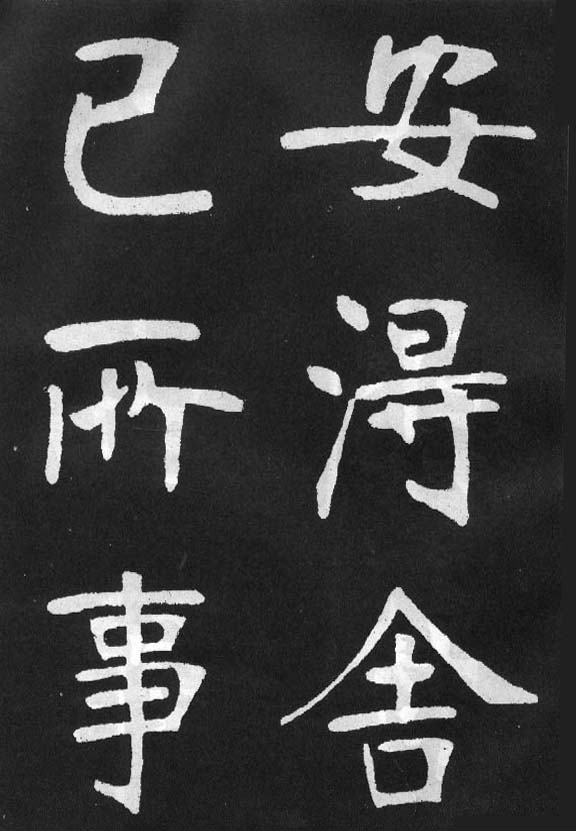 安得舍
己所事